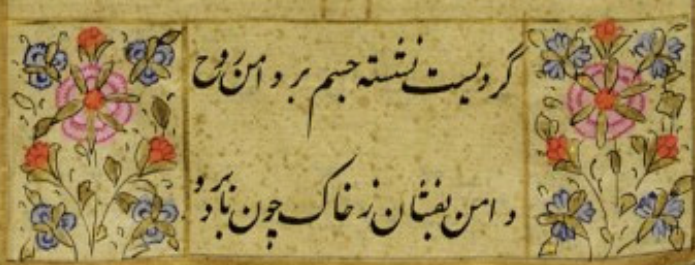 گردیست نشسته جسم بر دامن روح
دامن بفشان ز خاک چون باد برو